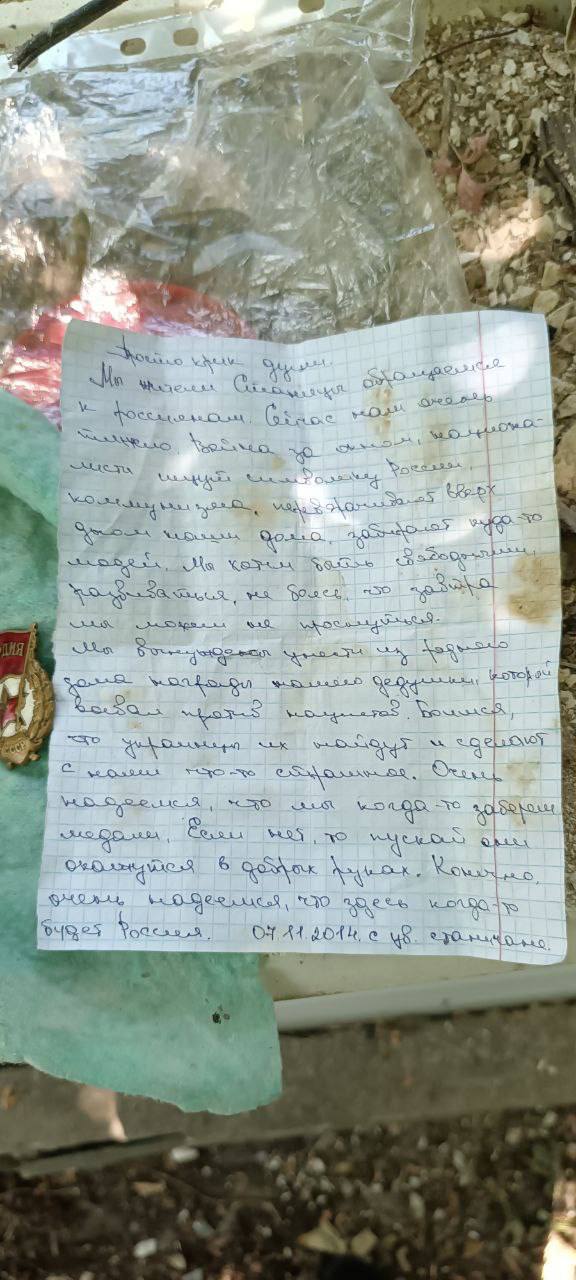 Просто крик души.
Мы жители Станицы обращаемся
к россиянам. Сейчас нам очень
тяжело. Война за окном, национа-
листи ищут символику России,
коммунизма, переворачивают вверх
дном наши дома, забирают куда-то
людей. Мы хотим быть свободными,
развиваться, не боясь, что завтра
мы можем не проснуться.
Мы вынуждены унести из родного
дома награды нашего дедушки, который
воевал против нацистов. Боимся,
что украинцы их найдут и сделают
с нами что-то страшное. Очень
надеемся, что мы когда-то заберем
медали. Если нет, то пускай они
окажутся в добрых руках. Конечно,
очень надеемся, что здесь когда-то
будет Россия. 07.11.2014. с ув. станичане.
СССР